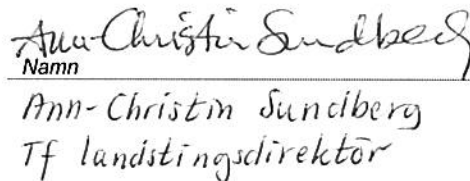 Ann-Christin Sundberg
Namn
Ann-Christin Sundberg
Tf landstingsdirektör